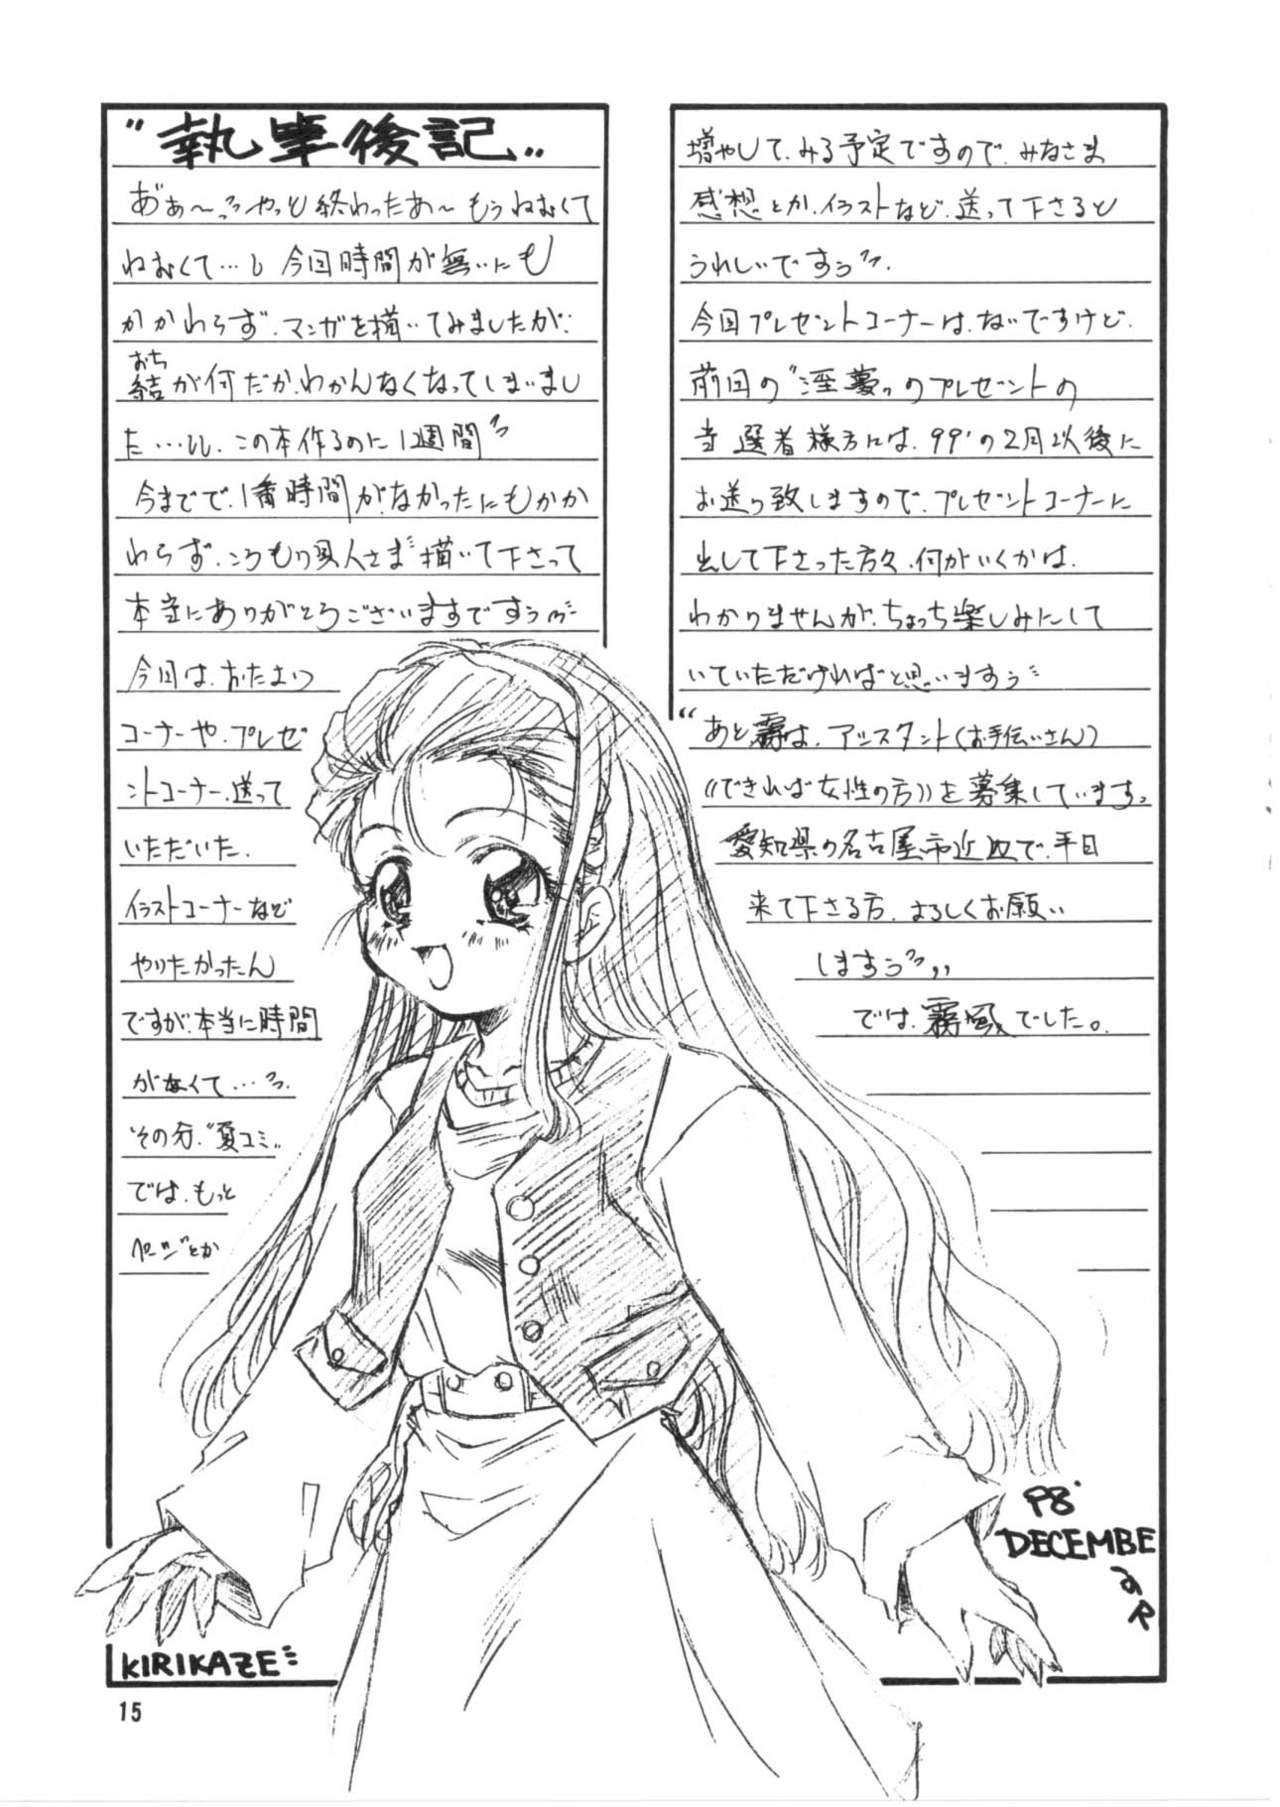 〝執筆後記〟
あ゛ぁ〜っやっと終わったあ〜もうねむくて
ねむくて…し 今回時間が無いにも
かかわらず、マンガを描いてみましたが、
結(おち)が何だか、わかんなくなってしまいまし
た…し、この本作るのに1週間
今までで、1番時間がなかったにもかか
わらず、ころもり員人さま描いて下さって
本当にありがとうございますですぅ
今回は、おたより
コーナーや、プレゼ
ントコーナー、送って
いただいた、
イラストコーナーなど
やりたかったん
ですが、本当に時間
がなくて…っ、
その分、〝夏コミ〟
では、もっと
ページとか
増やして、みる予定ですので、みなさま
感想とか、イラストなど、送って下さると
うれしいですぅっ、
今回プレゼントコーナーは、ないですけど、
前回の〝淫夢〟のプレゼントの
当選者様方には、99'の2月以後に
お送り致しますので、プレゼントコーナーに
出して下さった方々、何がいくかは、
わかりませんが、ちょっち楽しみにして
いていただければと思いますぅ
〝あと霧は、アシスタント(お手伝いさん)
((できれば女性の方))を募集しています。
愛知県の名古屋市近辺で、平日
来て下さる方、よろしくお願い
しますぅっ〟
では、霧風でした。
98'
DECEMBE
R
KIRIKAZE
15